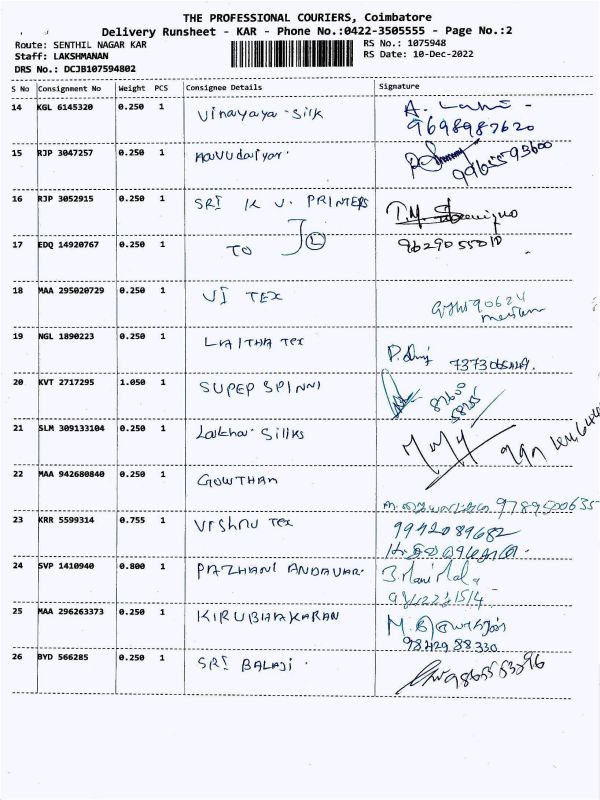 THE PROFESSIONAL COURIERS, Coimbatore
Delivery Runsheet - KAR - Phone No.:0422-3505555 - Page No.:2
Route: SENTHIL NAGAR KAR
Staff: LAKSHMANAN
DRS No.: DCJB107594802
RS No.: 1075948
RS Date: 10-Dec-2022
S No Consignment No Weight PCS Consignee Details Signature
14 KGL 6145320 0.250 1 Vinayaya-Silk
9698987620
15 RJP 3047257 0.250 1
9965593600
16 RJP 3052915 0.250 1 SRI K V. PRINTERS
17 EDQ 14920767 0.250 1 TO
9629055010
18 MAA 295020729 0.250 1 VI TEX
19 NGL 1890223 0.250 1 LALTHA Tex
20 KVT 2717295 1.050 1 SUPER SPINNI
87600
58255
21 SLM 309133104 0.250 1
22 MAA 942680840 0.250 1 GOWTHAM
9789500635
23 KRR 5599314 0.755 1 Vishnu Tex
9942089682
24 SVP 1410940 0.800 1 PAZHANI ANDAVAR.
25 MAA 296263373 0.250 1 KIRUBHAKARAN
9842988330
26 BYD 566285 0.250 1 SRI BALAJI.
9865553396